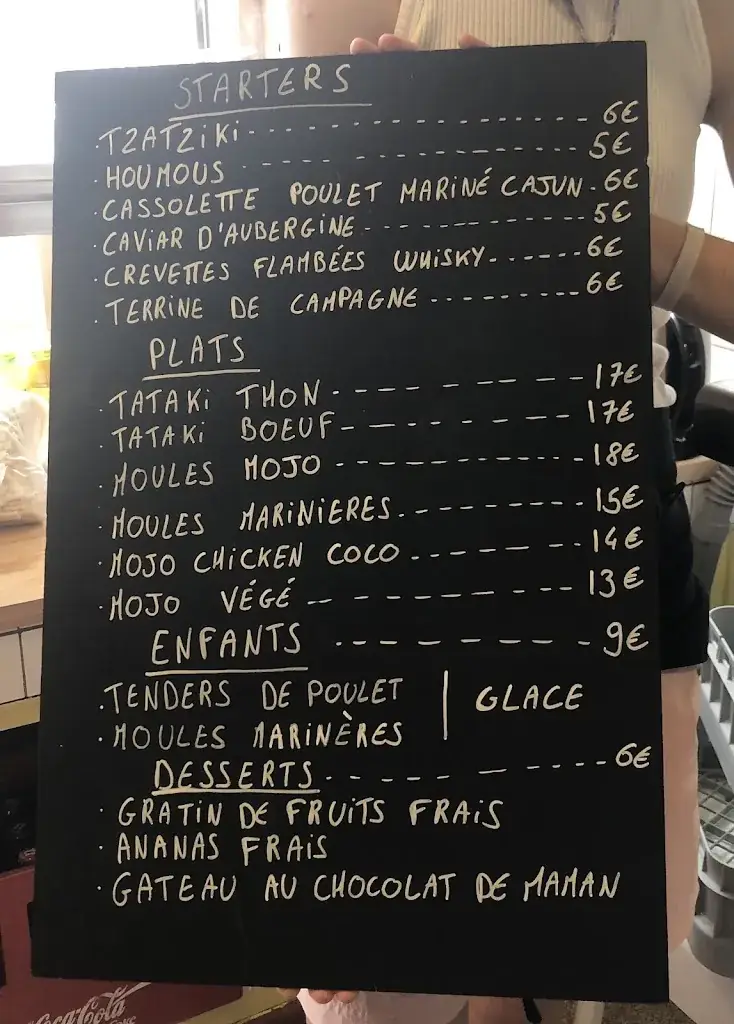 STARTERS
· TZATZIKI - - - - - - - - - - - - - - - 6€
· HOUMOUS - - - - - - - - - - - - - - - 5€
· CASSOLETTE POULET MARINÉ CAJUN - 6€
· CAVIAR D'AUBERGINE - - - - - - - - - - - 5€
· CREVETTES FLAMBÉES WHISKY - - - - - - 6€
· TERRINE DE CAMPAGNE - - - - - - - - - 6€
PLATS
· TATAKI THON - - - - - - - - - - - 17€
· TATAKI BOEUF - - - - - - - - - - - 17€
· MOULES MOJO - - - - - - - - - - - - 18€
· MOULES MARINIERES - - - - - - - - - 15€
· MOJO CHICKEN COCO - - - - - - - - 14€
· MOJO VÉGÉ - - - - - - - - - - - 13€
ENFANTS - - - - - - - - - - 9€
· TENDERS DE POULET | GLACE
· MOULES MARINÈRES
DESSERTS - - - - - - - - - - - 6€
· GRATIN DE FRUITS FRAIS
· ANANAS FRAIS
· GATEAU AU CHOCOLAT DE MAMAN
Coca-Cola